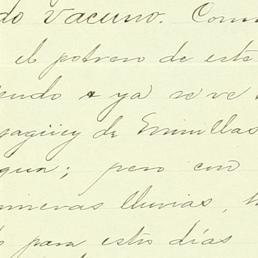 do vacuno. Com
el potrero de este
endo & ya se ve
sagüey de Semillas
gua; pero con
rimeras lluvias, h
s para estos días